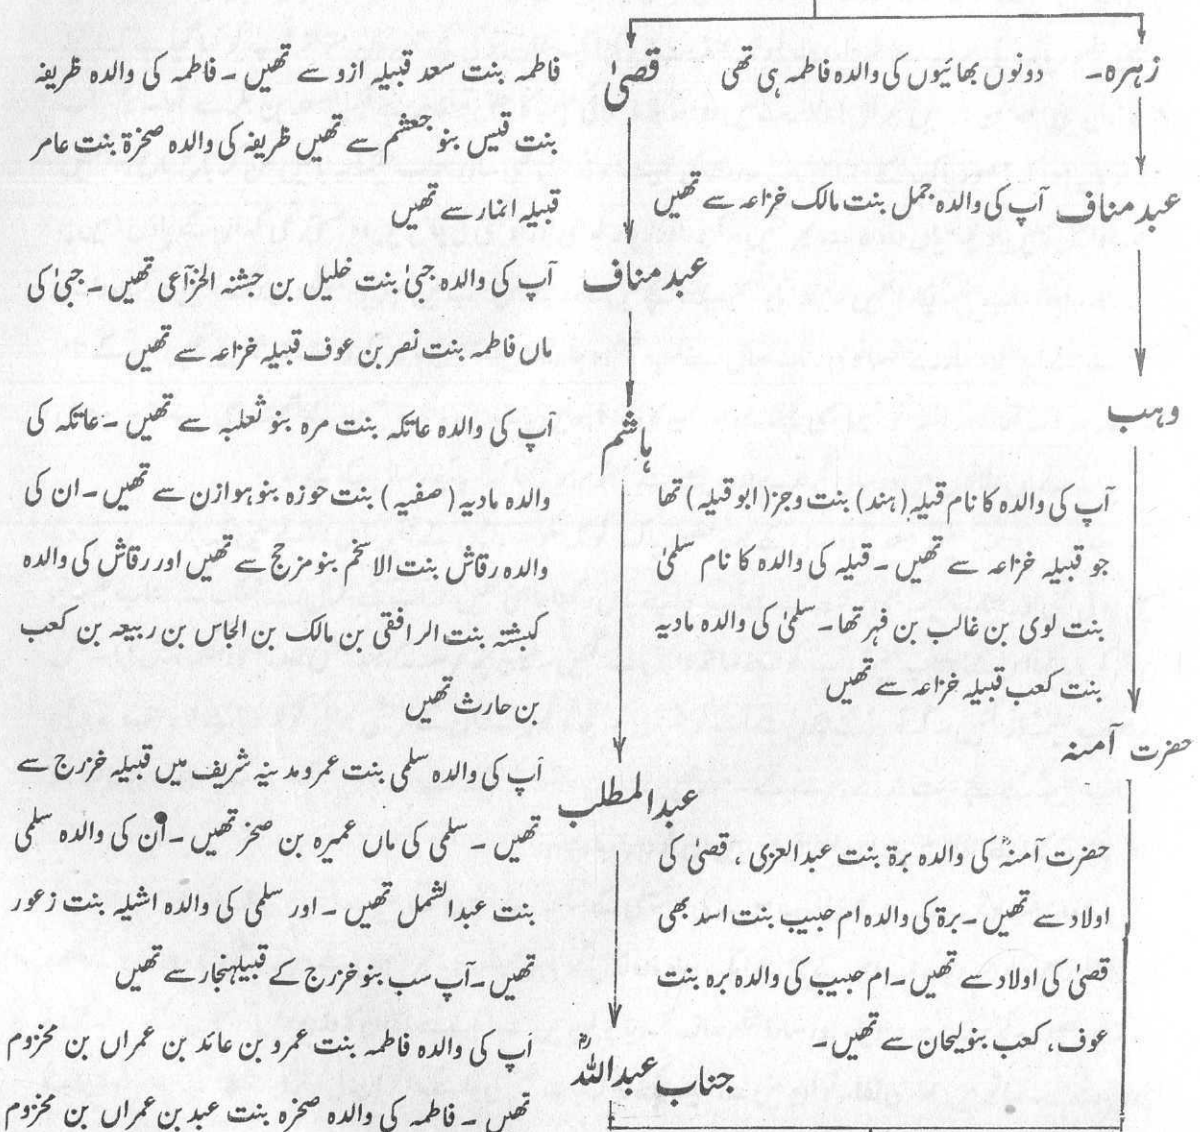 زہرہ۔ دونوں بھائیوں کی والدہ فاطمہ ہی تھی
عبد مناف آپ کی والدہ جمل بنت مالک خزاعہ سے تھیں
وہب
آپ کی والدہ کا نام قیلہ (ہند) بنت وجز (ابو قیلہ) تھا
جو قبیلہ خزاعہ سے تھیں ۔ قیلہ کی والدہ کا نام سلمیٰ
بنت لوی بن غالب بن فہر تھا۔ سلمیٰ کی والدہ مادیہ
بنت کعب قبیلہ خزاعہ سے تھیں
حضرت آمنہ
حضرت آمنہؓ کی والدہ برۃ بنت عبدالعزی ، قصیٰ کی
اولاد سے تھیں ۔ برۃ کی والدہ ام حبیب بنت اسد بھی
قصیٰ کی اولاد سے تھیں ۔ ام حبیب کی والدہ برہ بنت
عوف، کعب بنو لیحان سے تھیں ۔
قصیٰ
فاطمہ بنت سعد قبیلہ ازو سے تھیں ۔ فاطمہ کی والدہ ظریفہ
بنت قیس بنو جعشم سے تھیں ظریفہ کی والدہ صخرۃ بنت عامر
قبیلہ انمار سے تھیں
عبد مناف
آپ کی والدہ جبیٰ بنت خلیل بن جشنہ الخزآعی تھیں ۔ جبیٰ کی
ماں فاطمہ بنت نصر بن عوف قبیلہ خزاعہ سے تھیں
ہاشم
آپ کی والدہ عاتکہ بنت مرہ بنو ثعلبہ سے تھیں ۔ عاتکہ کی
والدہ مادیہ (صفیہ) بنت حوزہ بنو ہوازن سے تھیں ۔ ان کی
والدہ رقاش بنت الاسخم بنو مزحج سے تھیں اور رقاش کی والدہ
کبشتہ بنت الرافقی بن مالک بن الجاس بن ربیعہ بن کعب
بن حارث تھیں
عبدالمطلب
آپ کی والدہ سلمی بنت عمرو مدینہ شریف میں قبیلہ خزرج سے
تھیں ۔ سلمی کی ماں عمیرہ بن صخر تھیں ۔ ان کی والدہ سلمی
بنت عبدالشمل تھیں ۔ اور سلمی کی والدہ اشیلہ بنت زعور
تھیں ۔ آپ سب بنو خزرج کے قبیلہنجار سے تھیں
جناب عبداللہؓ
آپ کی والدہ فاطمہ بنت عمرو بن عائد بن عمراں بن مخزوم
تھیں ۔ فاطمہ کی والدہ صخرہ بنت عبد بن عمراں بن مخزوم